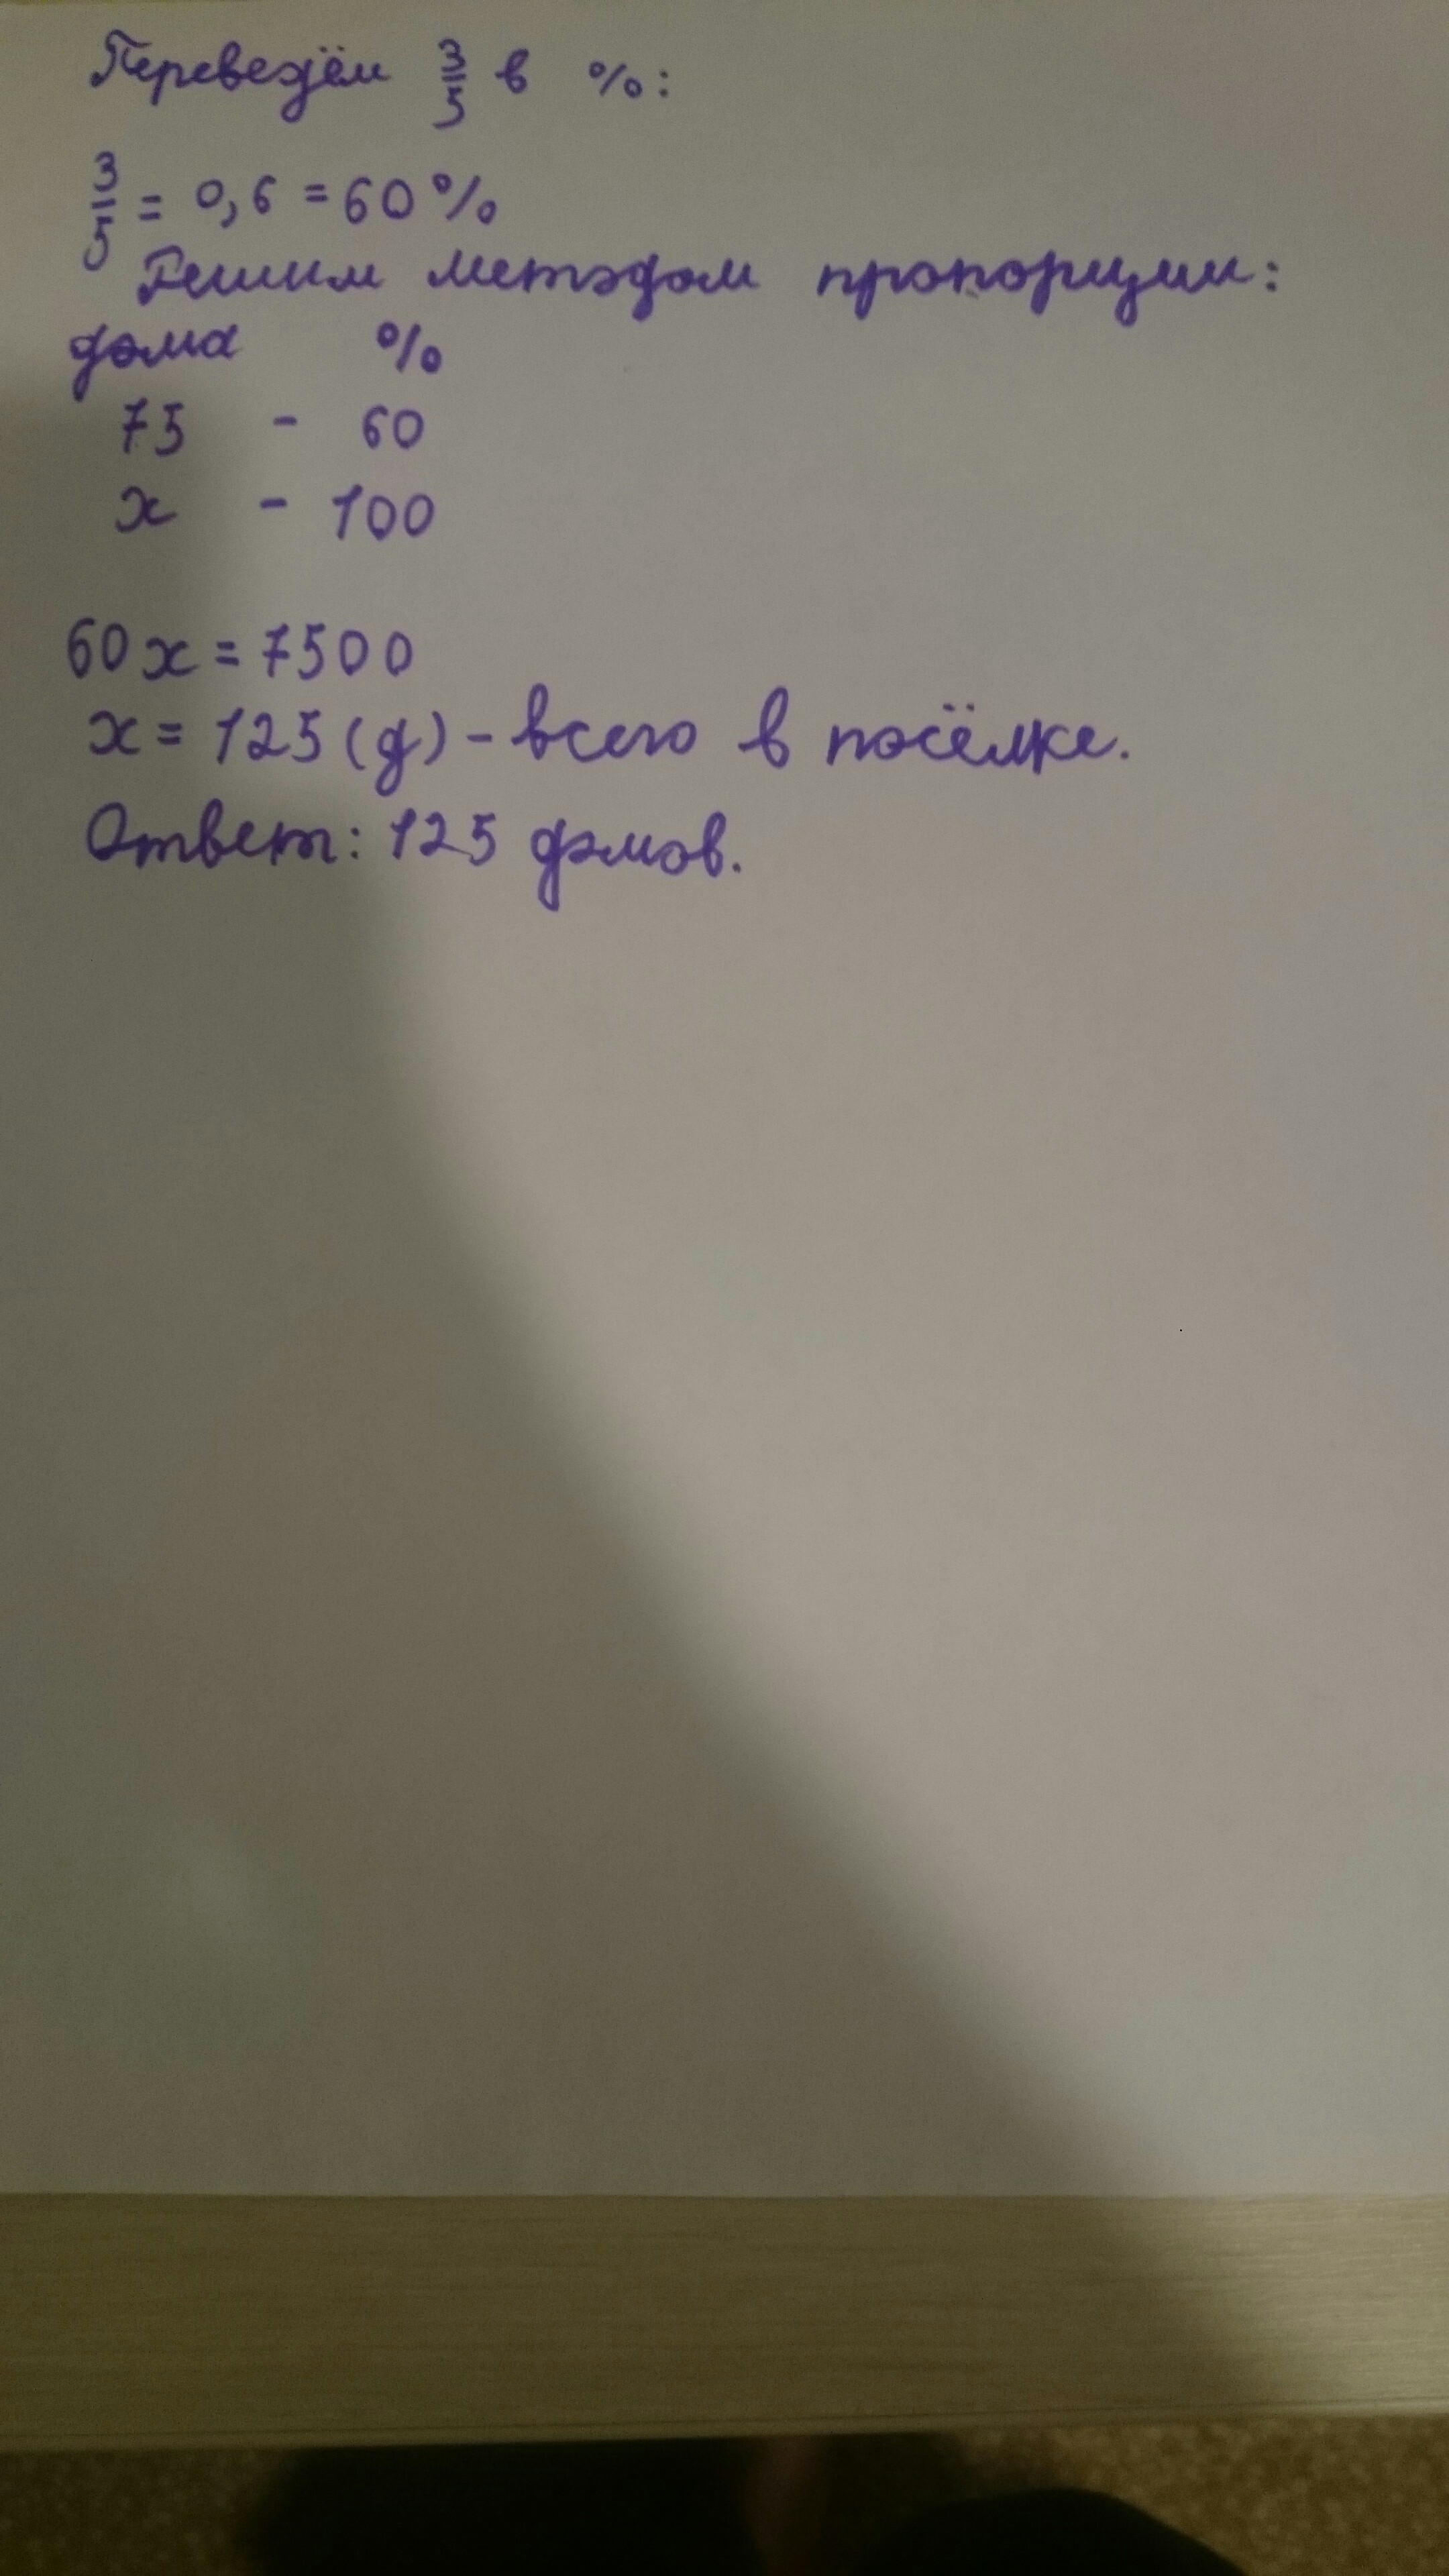 Переведём 3/5 в %:
3/5 = 0,6 = 60%
Решим методом пропорции:
дома %
75 - 60
x - 100
60x = 7500
x = 125 (д) - всего в посёлке.
Ответ: 125 домов.